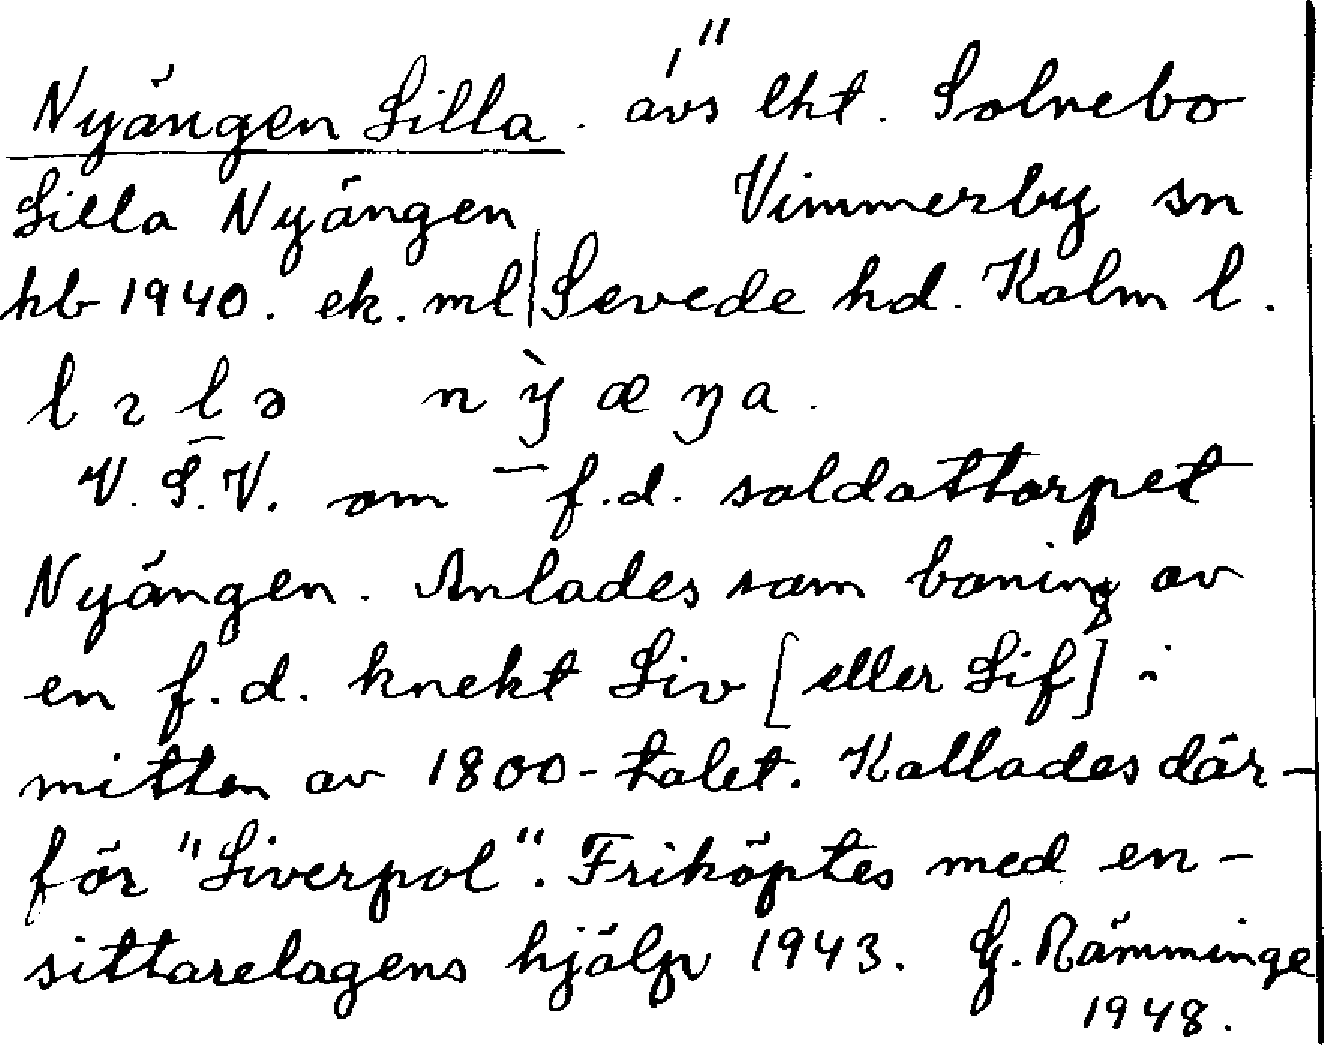 Nyängen Lilla. avs lht. Solnebo
Lilla Nyängen Vimmerby sn
hb 1940. ek. ml Sevede hd. Kalm l.
l ɿ l ə n ỳ æ ŋ a.
V. S. V. om f.d. soldattorpet
Nyängen. Anlades som boning av
en f.d. knekt Liv [eller Lif] i
mitten av 1800-talet. Kallades där-
för "Liverpol". Friköptes med en-
sittarelagens hjälp 1943. G. Rämminge
1948.